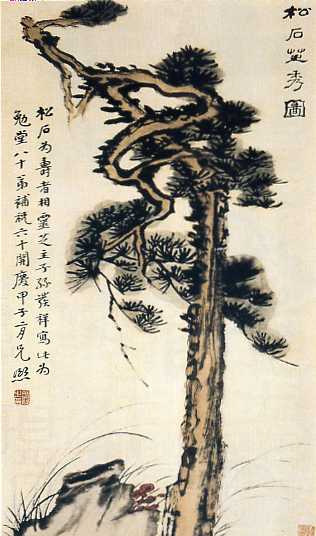 松石芝秀圖
松石為壽者相靈芝主子孫發祥寫此為
勉堂八十弟補祝六十開慶甲子二月兄熙